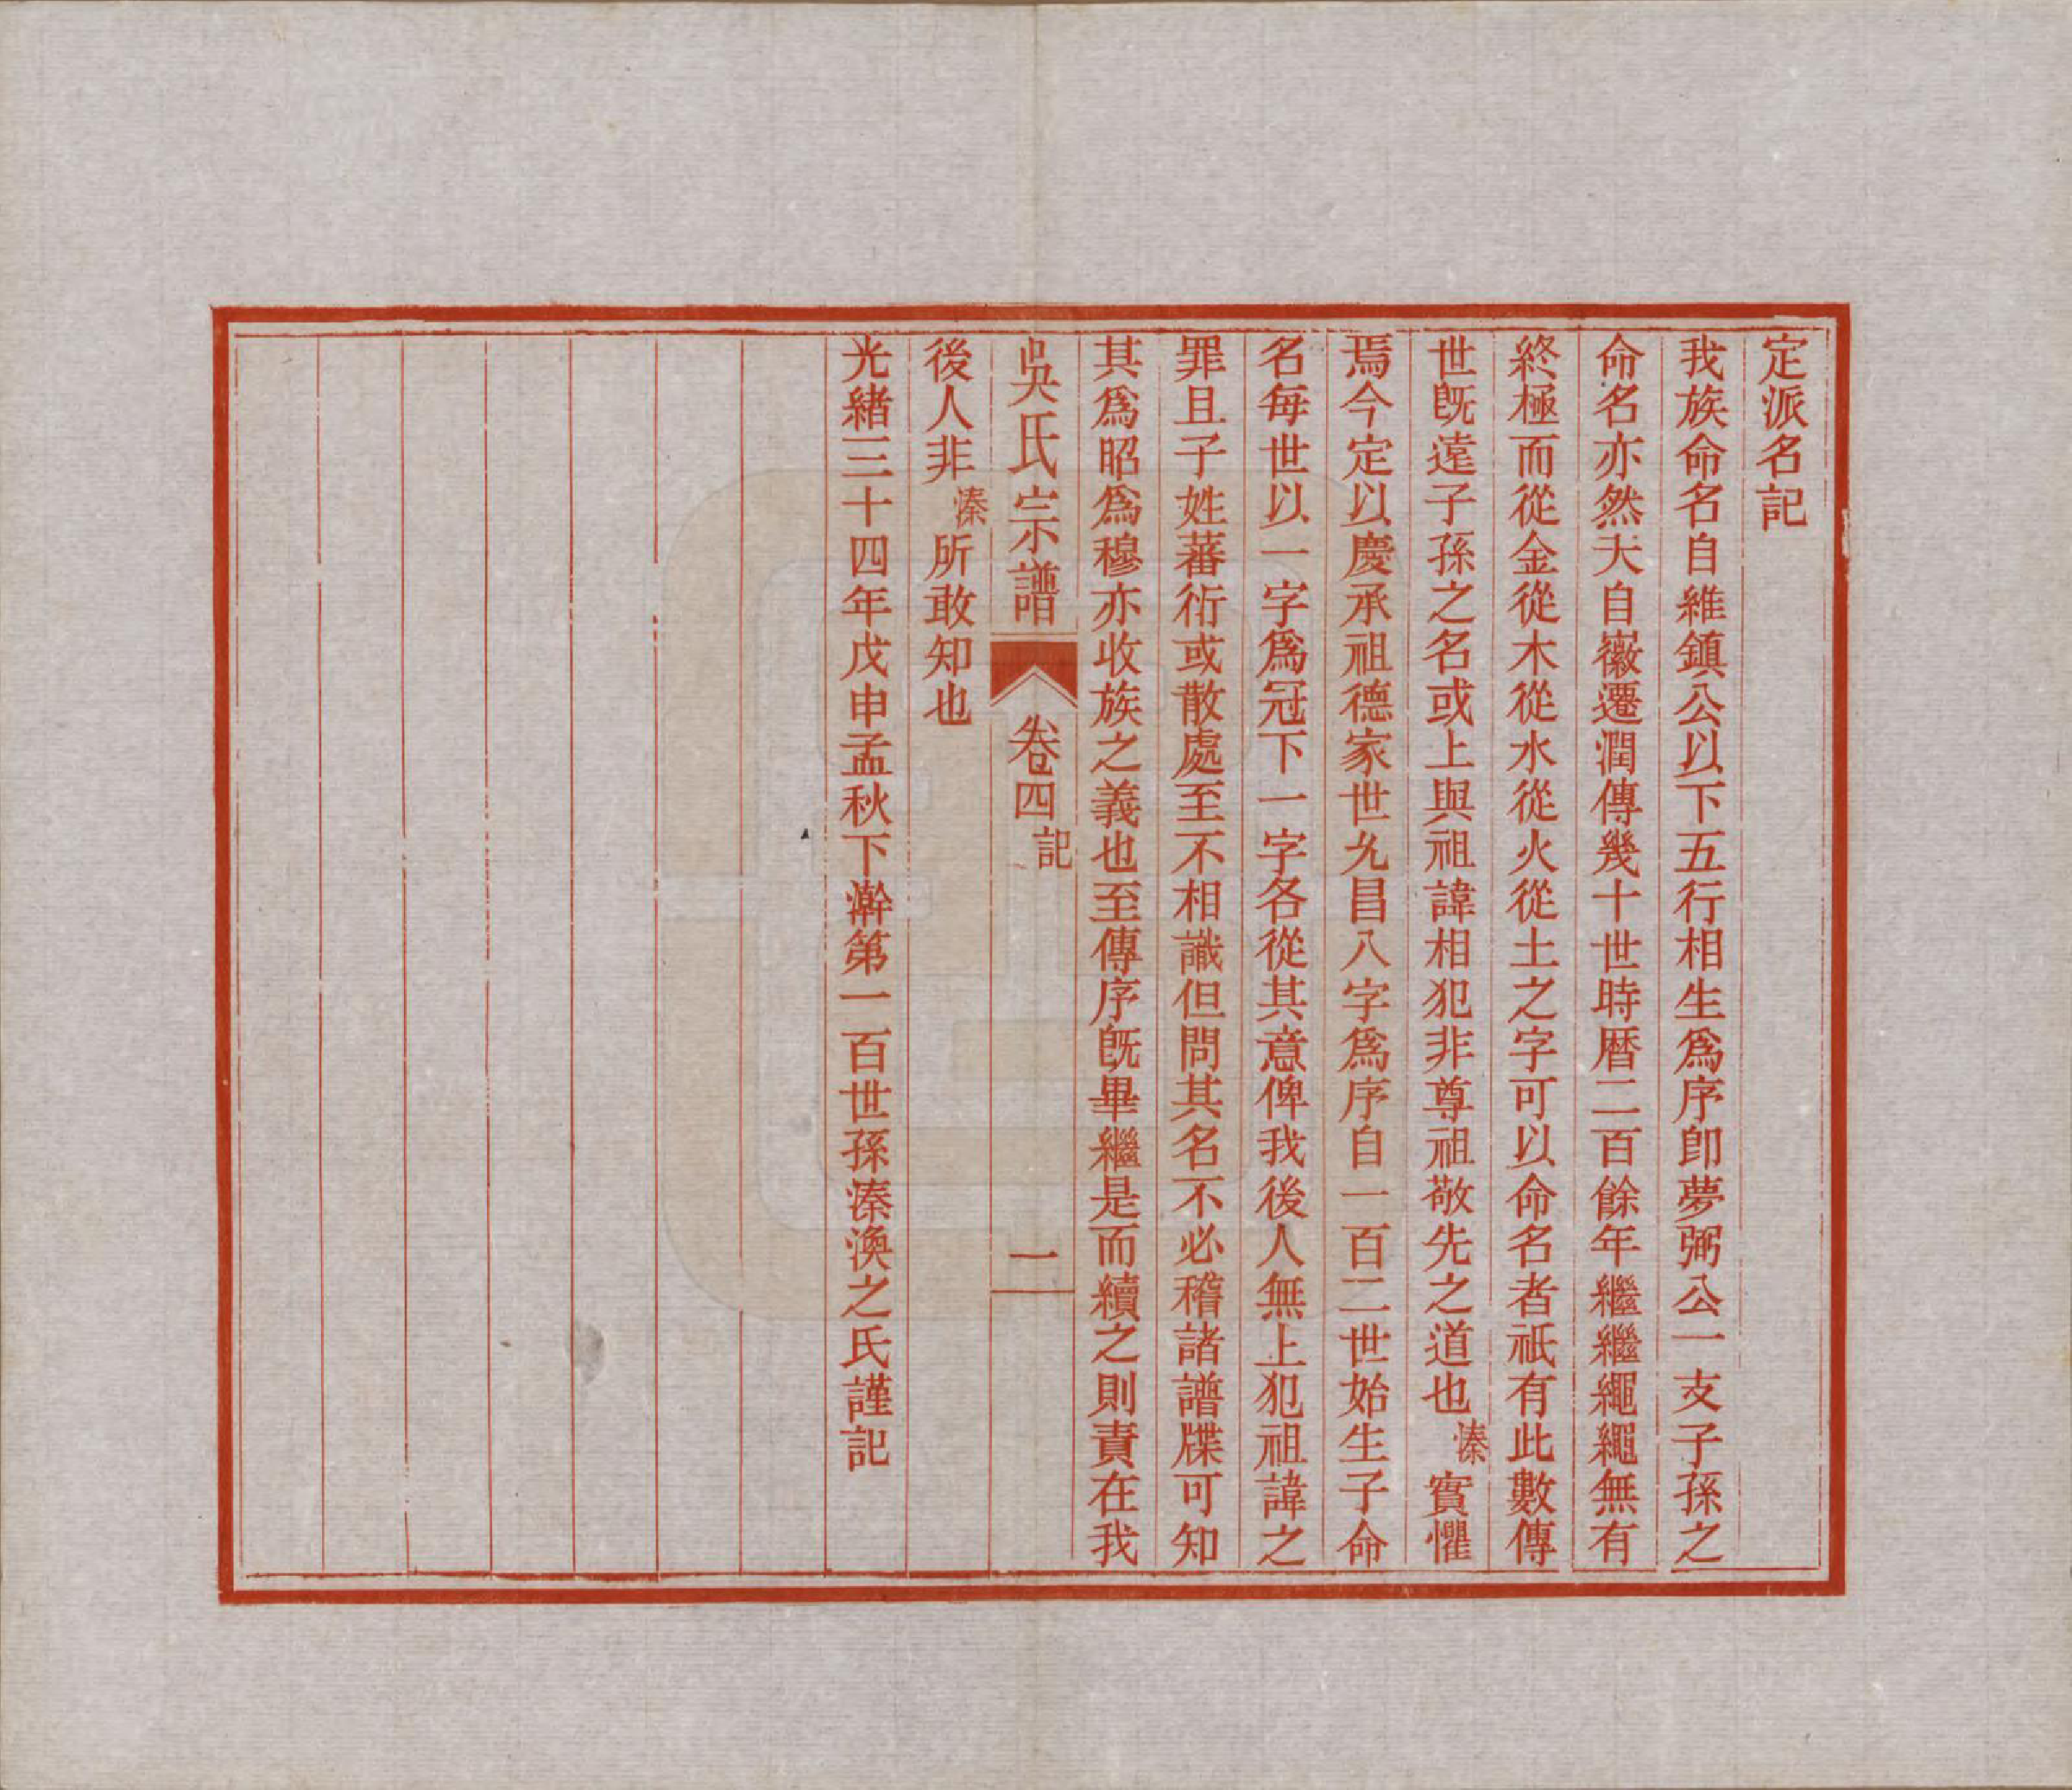 定派名記
我族命名自維鎮公以下五行相生爲序卽夢弼公一支子孫之
命名亦然夫自徽遷潤傳幾十世時曆二百餘年繼繼繩繩無有
終極而從金從木從水從火從土之字可以命名者祇有此數傳
世旣遠子孫之名或上與祖諱相犯非尊祖敬先之道也溱實懼
焉今定以慶承祖德家世允昌八字爲序自一百二世始生子命
名每世以一字爲冠下一字各從其意俾我後人無上犯祖諱之
罪且子姓蕃衍或散處至不相識但問其名不必稽諸譜牒可知
其爲昭爲穆亦收族之義也至傳序旣畢繼是而續之則責在我
吳氏宗譜 卷四 記 一
後人非溱所敢知也
光緒三十四年戊申孟秋下澣第一百世孫溱渙之氏謹記